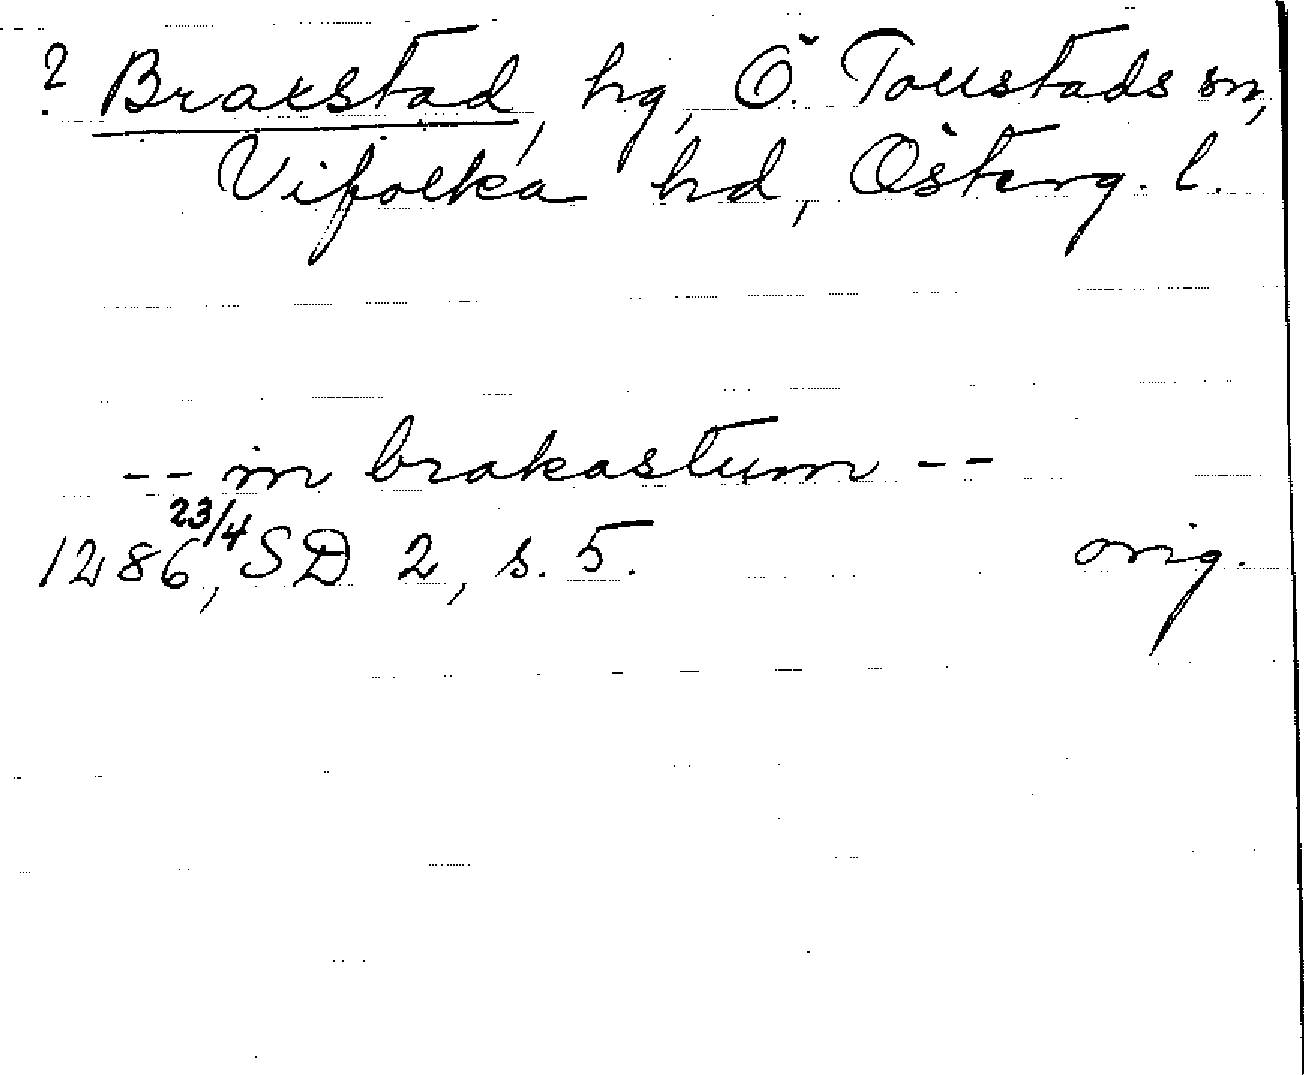 ? Braxstad, hg, Ö. Tollstads sn,
Vifolka hd, Österg. l.
-- in brakastum --
1286 23/4, SD 2, s. 5. orig.